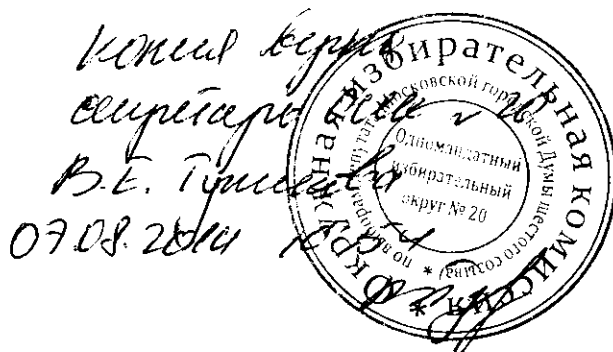 копия верна
секретарь ОИК № 20
В.Е.
07.08.2014
Окружная избирательная комиссия *
по выборам депутата Московской городской Думы шестого созыва) *
Одномандатный
избирательный
округ № 20